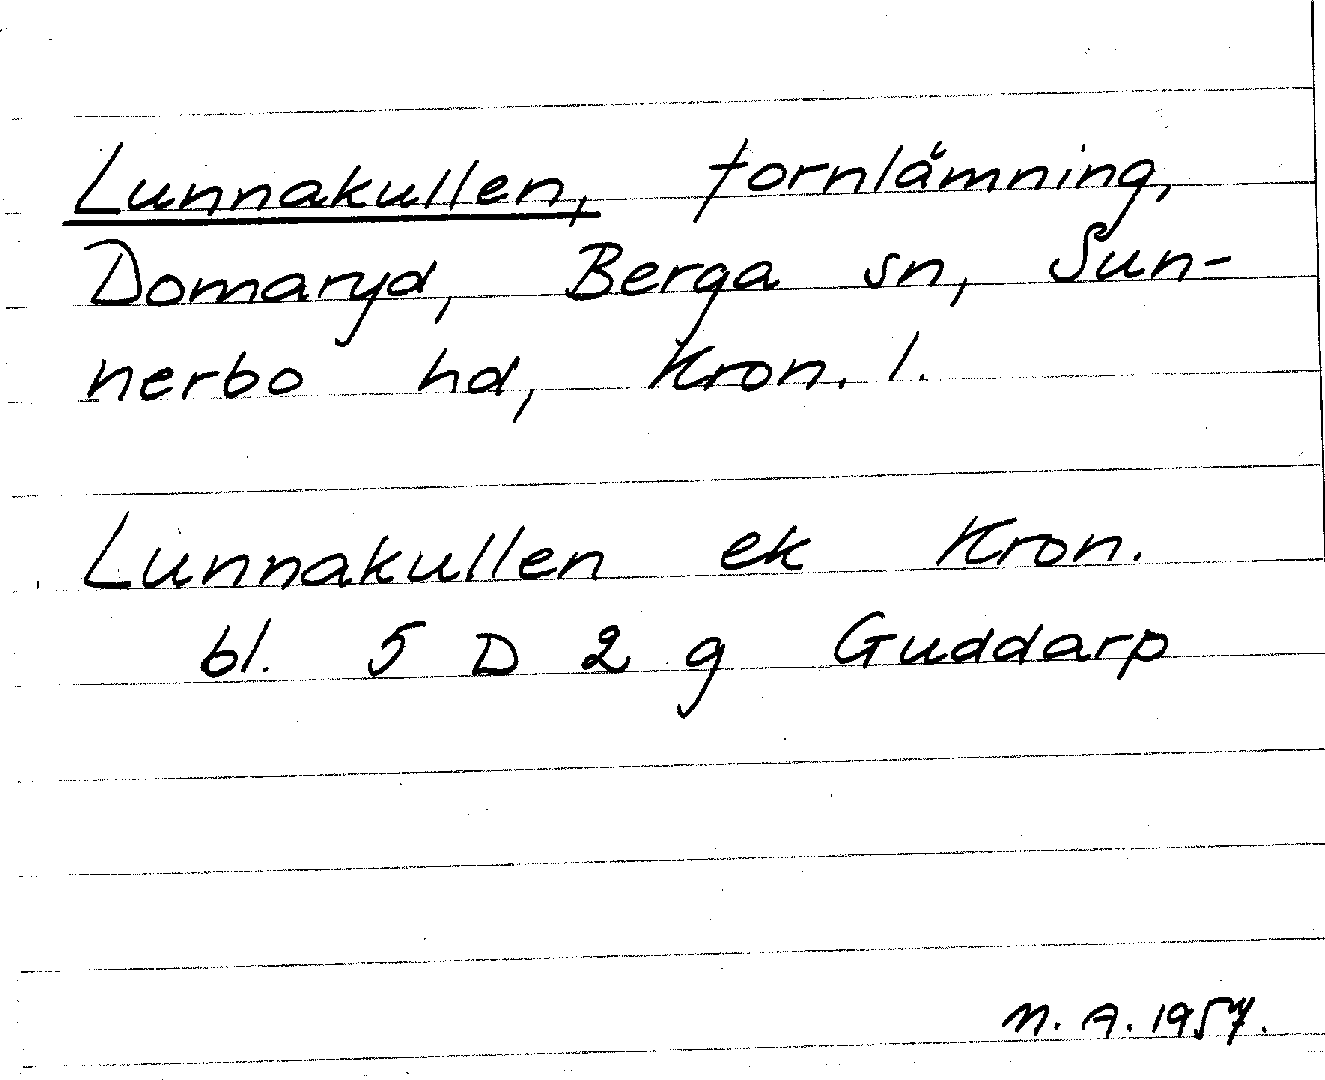 Lunnakullen, fornlämning,
Domaryd, Berga sn, Sun-
nerbo hd, Kron. l.
Lunnakullen ek Kron.
bl. 5 D 2 g Guddarp
N. A. 1957.